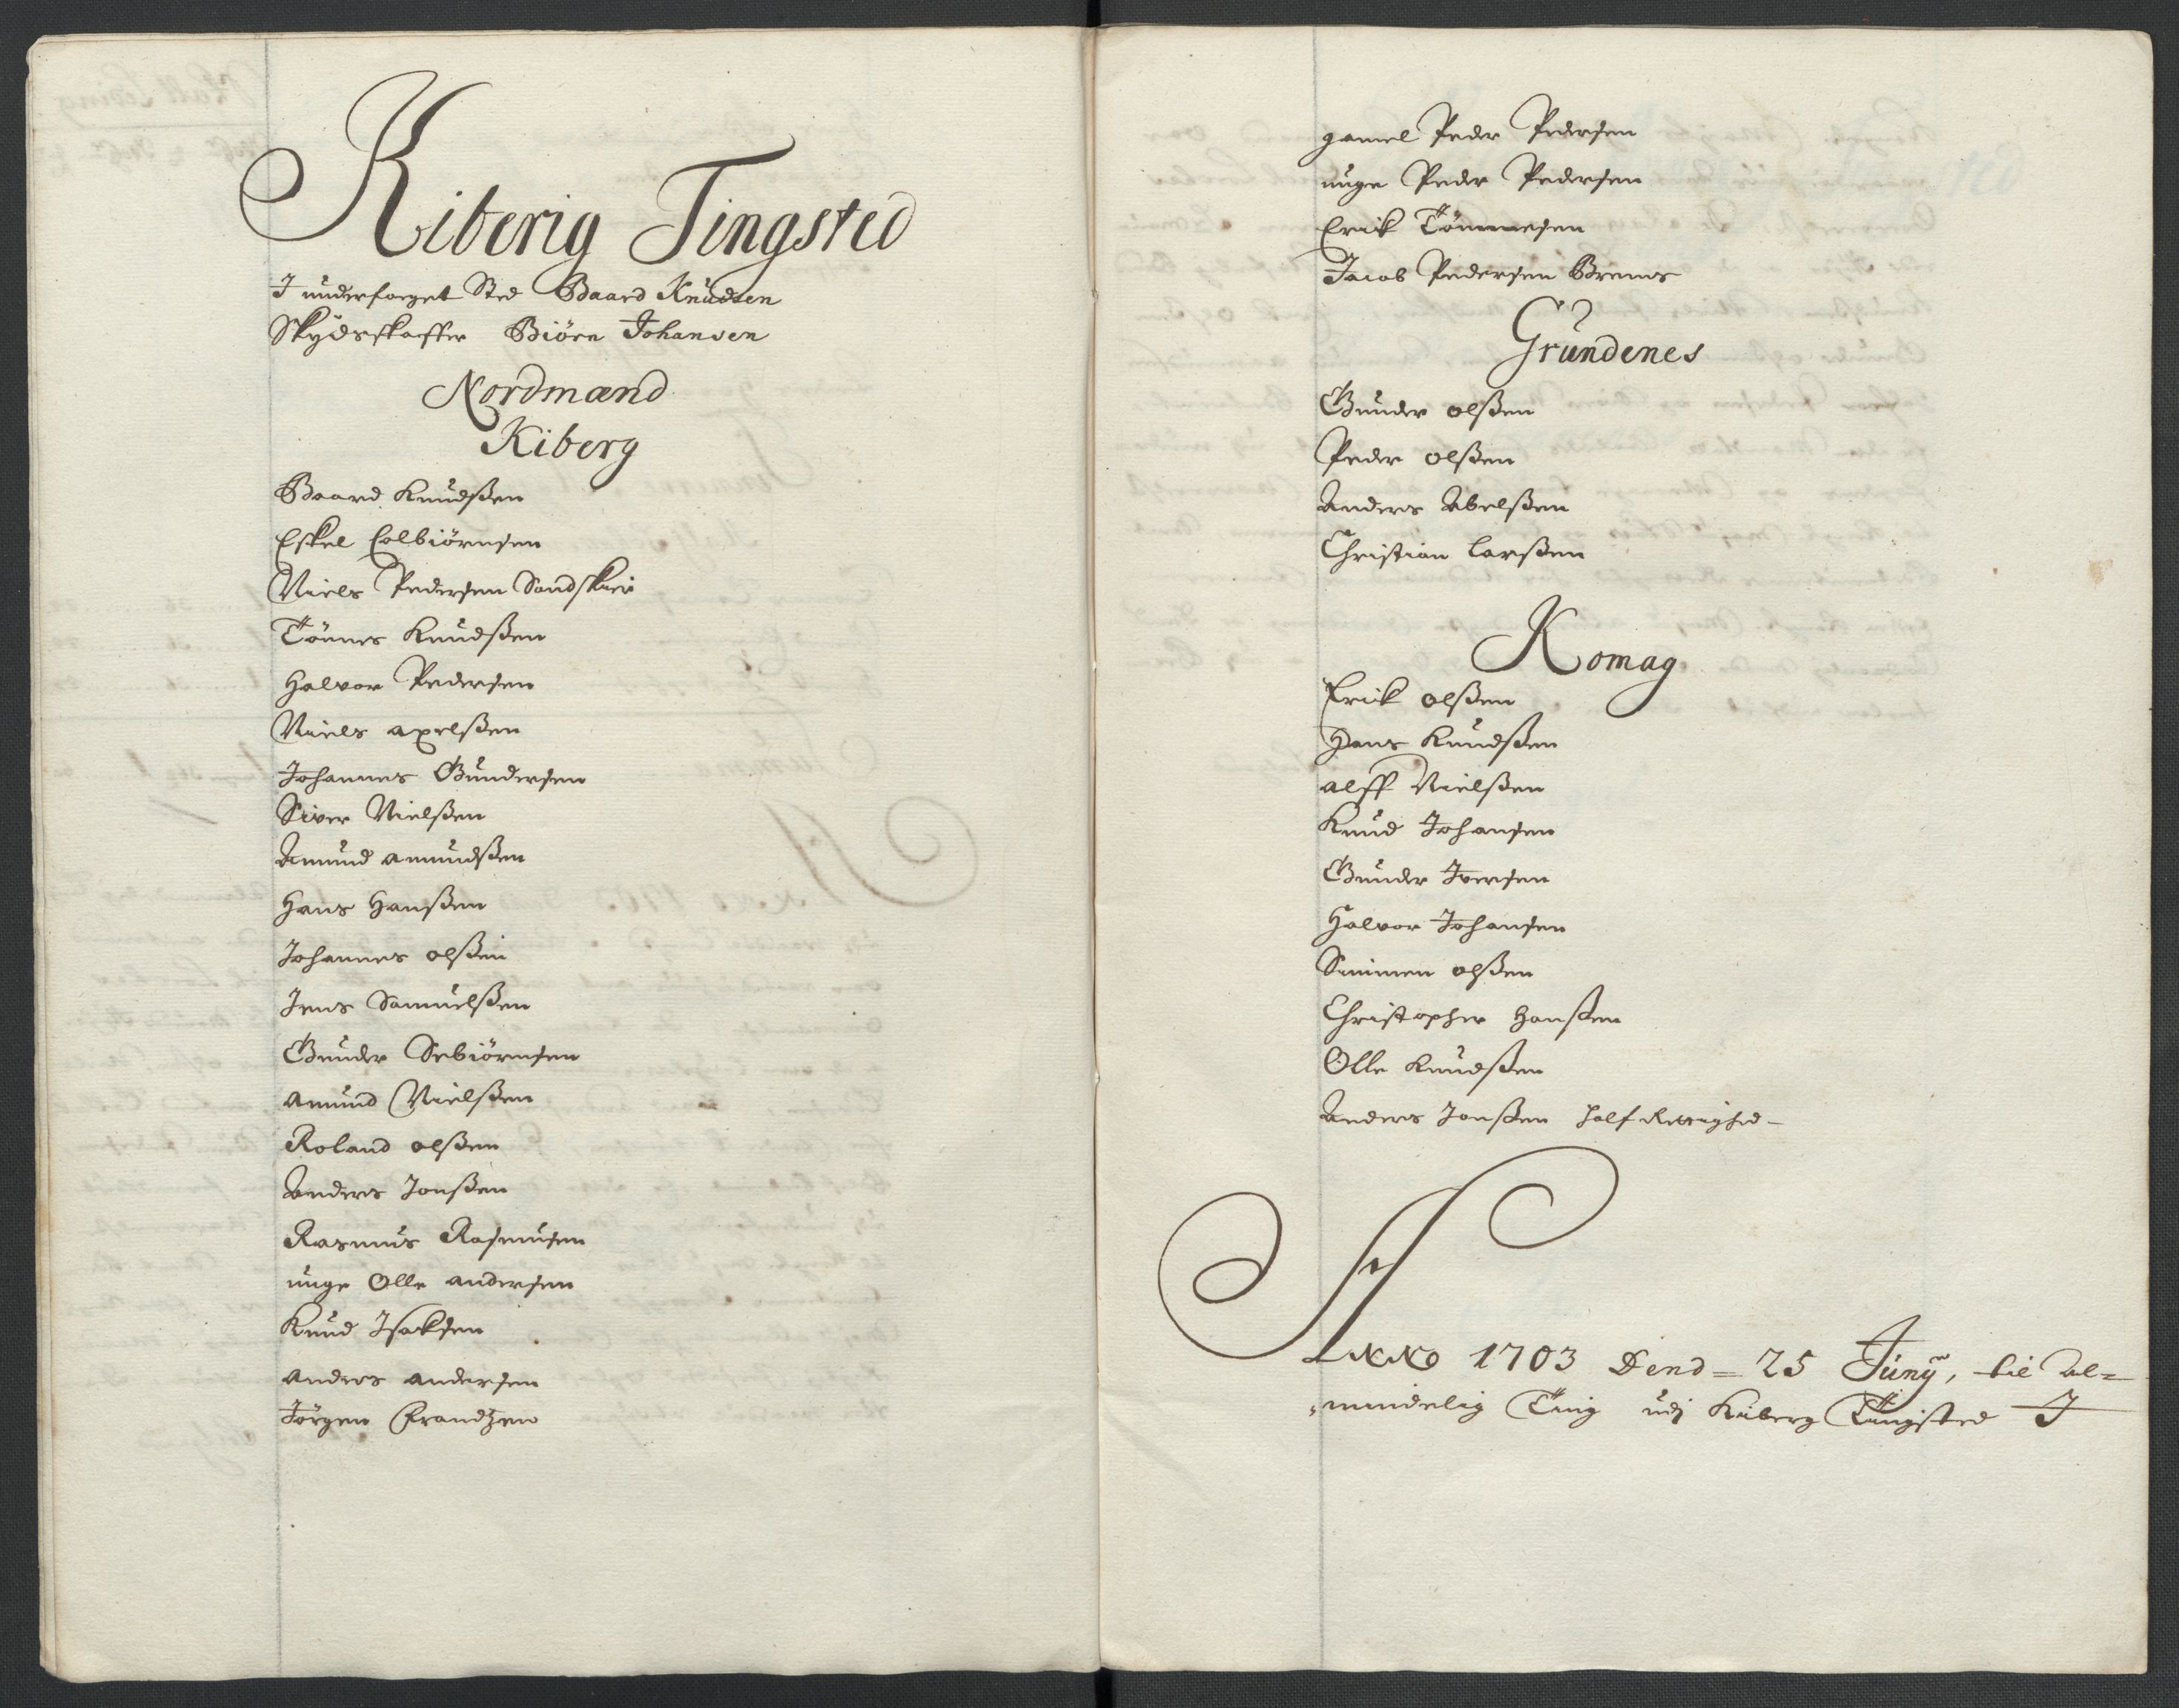 Kiberig Tingsted
I underfoeget Sted Baard Knudsen
Skydsskaffer Biörn Johansen
Nordmænd
Kiberg
Baard Knudßen
Eskel Colbiörnsen
Niels Pedersen Sandskier
Tönnes Knudßen
Halvor Pedersen
Niels axelßen
Johannes Gundersen
Siver Nielßen
Amund amundßen
Hans Hanßen
Johannes olßen
Jens Samuelßen
Gunder Sebiörnsen
amund Nielßen
Roland olßen
Anders Jonßen
Rasmus Rasmusen
unge Olle andersen
Knud Isaksen
anders andersen
Jörgen Frandtzen
gamel Peder Pedersen
unge Peder Pedersen
Erik Tönnnesen
Jacob Pedersen Brems
Grundenes
Gunder olßen
Peder olßen
Anders Abelßen
Christian Larßen
Komag
Erik olßen
Hans Knudßen
alff Nielßen
Knud Johansen
Gunder Iversen
Halvor Johansen
Simmen olßen
Christopher Hanßen
Olle Knudßen
Anders Jonßen half Rettighed -
ANNO 1703 Dend = 25 Juny, til Al=
mindelig Ting udj Kiberg Tingsted I